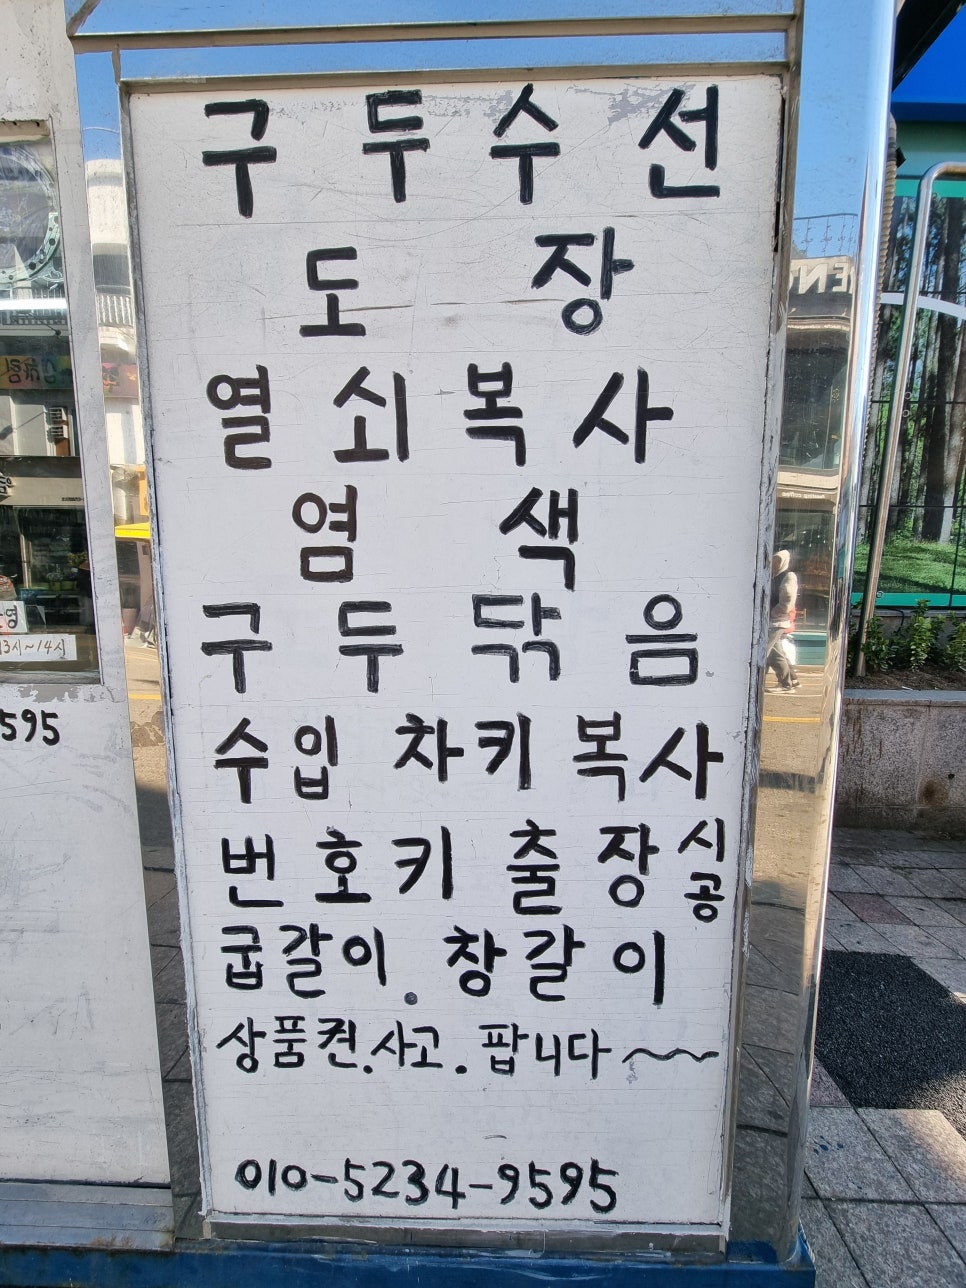 구두수선
도장
열쇠복사
염색
구두닦음
수입 차키 복사
번호키 출장시공
굽갈이. 창갈이
상품퀀.사고.팝니다~
010-5234-9595
595
13시~14시
EN